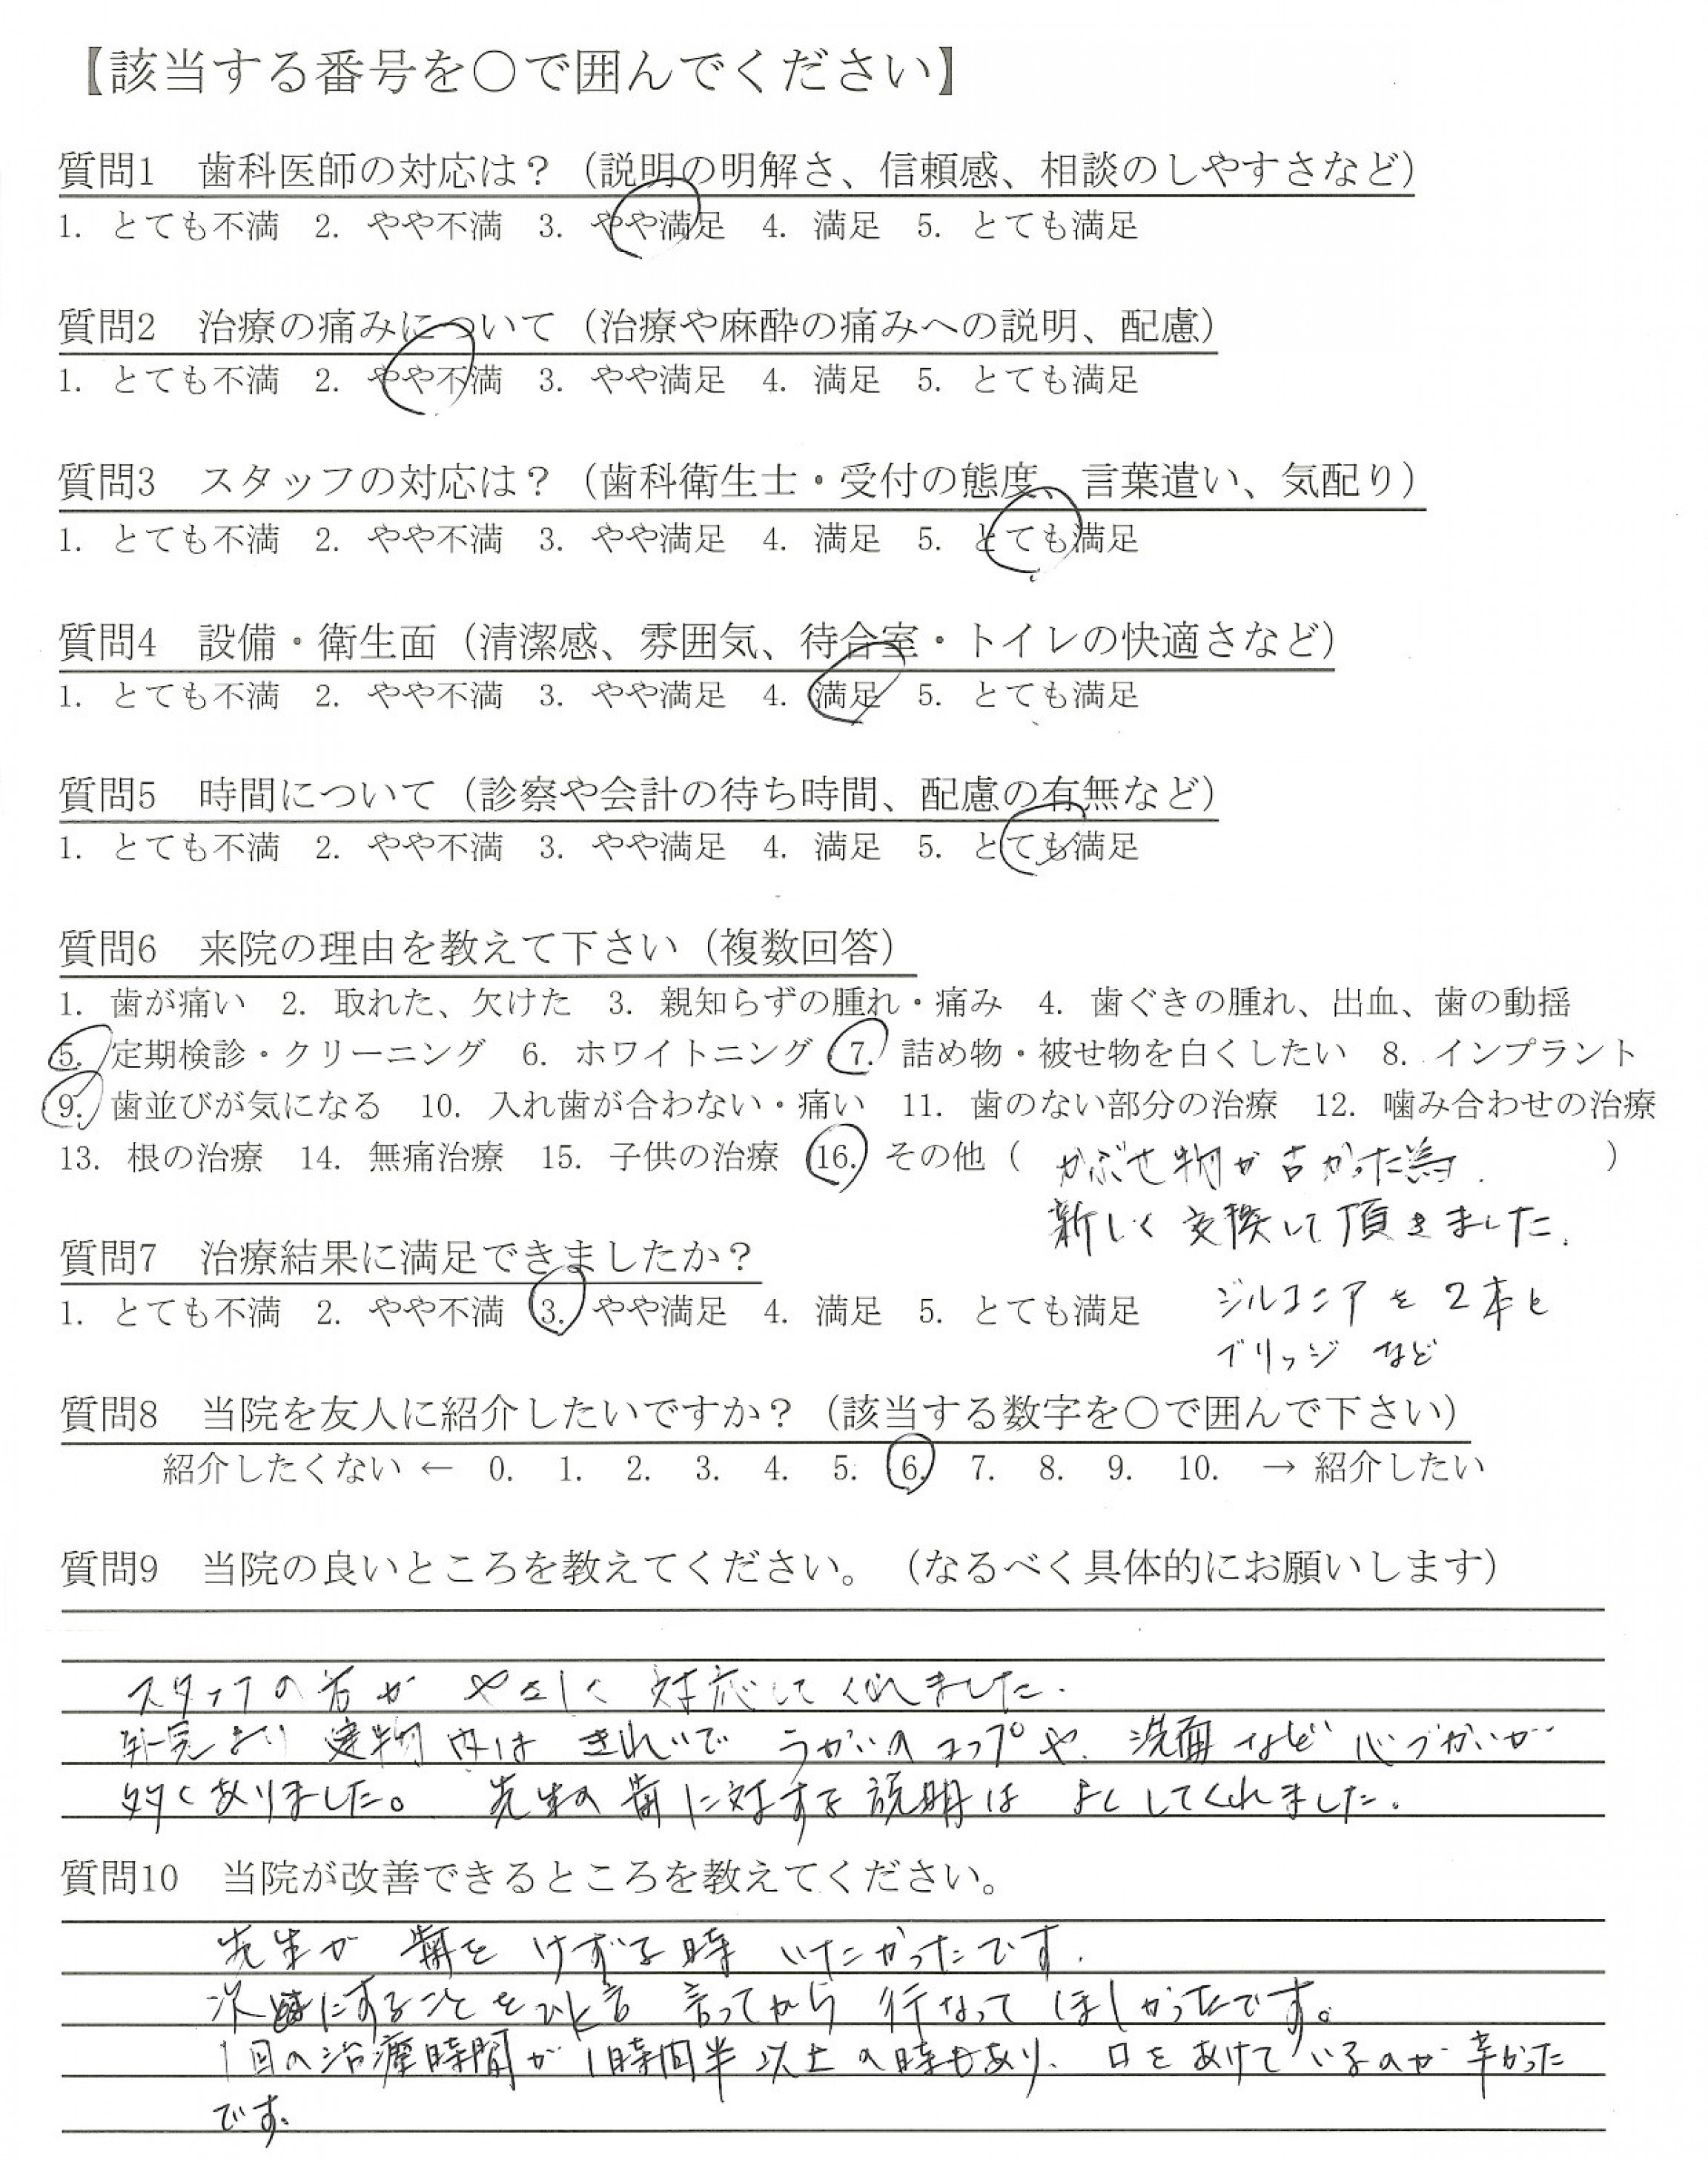 【該当する番号を〇で囲んでください】
質問1 歯科医師の対応は？（説明の明解さ、信頼感、相談のしやすさなど）
1. とても不満 2. やや不満 3. やや満足 4. 満足 5. とても満足
質問2 治療の痛みについて（治療や麻酔の痛みへの説明、配慮）
1. とても不満 2. やや不満 3. やや満足 4. 満足 5. とても満足
質問3 スタッフの対応は？（歯科衛生士・受付の態度、言葉遣い、気配り）
1. とても不満 2. やや不満 3. やや満足 4. 満足 5. とても満足
質問4 設備・衛生面（清潔感、雰囲気、待合室・トイレの快適さなど）
1. とても不満 2. やや不満 3. やや満足 4. 満足 5. とても満足
質問5 時間について（診察や会計の待ち時間、配慮の有無など）
1. とても不満 2. やや不満 3. やや満足 4. 満足 5. とても満足
質問6 来院の理由を教えて下さい（複数回答）
1. 歯が痛い 2. 取れた、欠けた 3. 親知らずの腫れ・痛み 4. 歯ぐきの腫れ、出血、歯の動揺
5. 定期検診・クリーニング 6. ホワイトニング 7. 詰め物・被せ物を白くしたい 8. インプラント
9. 歯並びが気になる 10. 入れ歯が合わない・痛い 11. 歯のない部分の治療 12. 噛み合わせの治療
13. 根の治療 14. 無痛治療 15. 子供の治療 16. その他（ かぶせ物が古かった為. ）
新しく交換して頂きました.
質問7 治療結果に満足できましたか？
1. とても不満 2. やや不満 3. やや満足 4. 満足 5. とても満足
ジルコニアを2本と
ブリッジなど
質問8 当院を友人に紹介したいですか？（該当する数字を〇で囲んで下さい）
紹介したくない ← 0. 1. 2. 3. 4. 5. 6. 7. 8. 9. 10. → 紹介したい
質問9 当院の良いところを教えてください。（なるべく具体的にお願いします）
スタッフの方が やさしく 対応してくれました.
外見より 建物内は きれいで うがいのコップや、洗面など 心づかいが
多くありました。 先生の歯に対する説明は よくしてくれました。
質問10 当院が改善できるところを教えてください。
先生が 歯を けずる時 いたかったです.
次にすることを ひと言 言ってから 行なって ほしかったです。
1回の治療時間が 1時間半以上の時もあり、口をあけているのが辛かった
です.